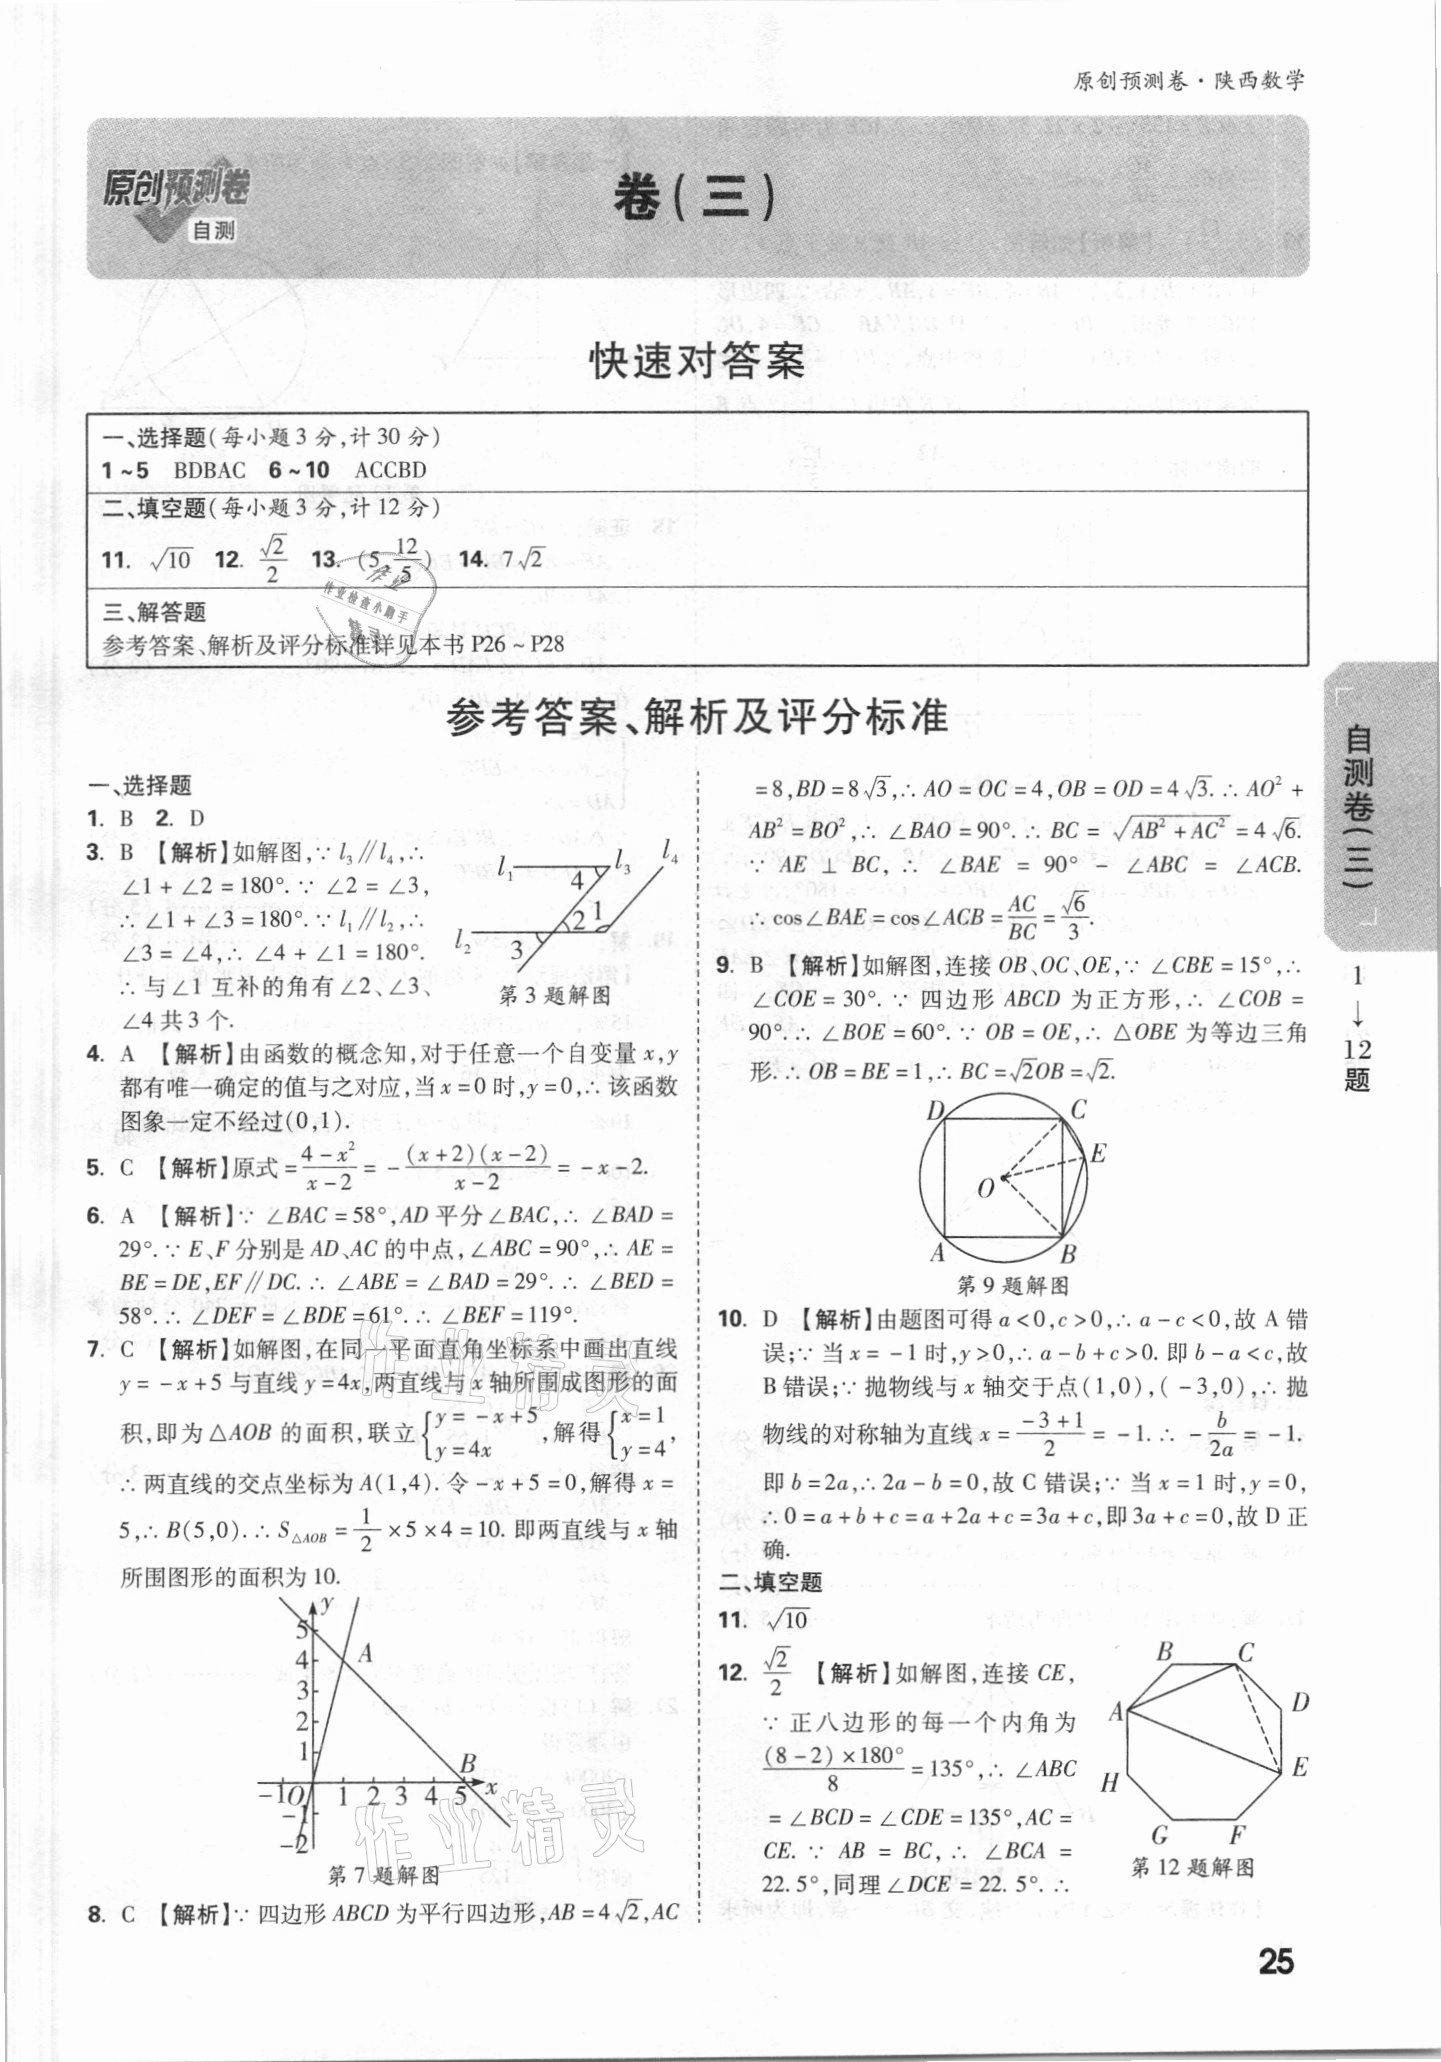 原创预测卷·陕西数学
原创预测卷
自测
卷(三)
快速对答案
一、选择题(每小题3分,计30分)
1~5 BDBAC 6~10 ACCBD
二、填空题(每小题3分,计12分)
11. √10 12. √2/2 13. (5, 12/5) 14. 7√2
三、解答题
参考答案、解析及评分标准详见本书P26~P28
参考答案、解析及评分标准
一、选择题
1. B 2. D
3. B 【解析】如解图,∵l₃∥l₄,∴
∠1+∠2=180°.∵∠2=∠3,
∴∠1+∠3=180°.∵l₁∥l₂,∴
∠3=∠4,∴∠4+∠1=180°.
∴与∠1互补的角有∠2、∠3、
∠4共3个.
l₁ l₃ l₄
4
2 1
l₂ 3
第3题解图
4. A 【解析】由函数的概念知,对于任意一个自变量x,y
都有唯一确定的值与之对应,当x=0时,y=0,∴该函数
图象一定不经过(0,1).
5. C 【解析】原式=(4-x²)/(x-2)=-(x+2)(x-2)/(x-2)=-x-2.
6. A 【解析】∵∠BAC=58°,AD平分∠BAC,∴∠BAD=
29°.∵E、F分别是AD、AC的中点,∠ABC=90°,∴AE=
BE=DE,EF∥DC.∴∠ABE=∠BAD=29°.∴∠BED=
58°.∴∠DEF=∠BDE=61°.∴∠BEF=119°.
7. C 【解析】如解图,在同一平面直角坐标系中画出直线
y=-x+5与直线y=4x,两直线与x轴所围成图形的面
积,即为△AOB的面积,联立{y=-x+5 y=4x,解得{x=1 y=4,
∴两直线的交点坐标为A(1,4).令-x+5=0,解得x=
5,∴B(5,0).∴S△AOB=1/2×5×4=10.即两直线与x轴
所围图形的面积为10.
y
5
4 A
3
2
1 B
-1 O 1 2 3 4 5 x
-1
-2
第7题解图
8. C 【解析】∵四边形ABCD为平行四边形,AB=4√2,AC
=8,BD=8√3,∴AO=OC=4,OB=OD=4√3.∴AO²+
AB²=BO²,∴∠BAO=90°.∴BC=√(AB²+AC²)=4√6.
∵AE⊥BC,∴∠BAE=90°-∠ABC=∠ACB.
∴cos∠BAE=cos∠ACB=AC/BC=√6/3.
9. B 【解析】如解图,连接OB、OC、OE,∵∠CBE=15°,∴
∠COE=30°.∵四边形ABCD为正方形,∴∠COB=
90°.∴∠BOE=60°.∵OB=OE,∴△OBE为等边三角
形.∴OB=BE=1,∴BC=√2OB=√2.
D C
E
O
A B
第9题解图
10. D 【解析】由题图可得a<0,c>0,∴a-c<0,故A错
误;∵当x=-1时,y>0,∴a-b+c>0.即b-a<c,故
B错误;∵抛物线与x轴交于点(1,0),(-3,0),∴抛
物线的对称轴为直线x=(-3+1)/2=-1.∴-b/2a=-1.
即b=2a,∴2a-b=0,故C错误;∵当x=1时,y=0,
∴0=a+b+c=a+2a+c=3a+c,即3a+c=0,故D正
确.
二、填空题
11. √10
12. √2/2 【解析】如解图,连接CE,
∵正八边形的每一个内角为
(8-2)×180°/8=135°,∴∠ABC
=∠BCD=∠CDE=135°,AC=
CE.∵AB=BC,∴∠BCA=
22.5°,同理∠DCE=22.5°.∴
B C
A D
H E
G F
第12题解图
自测卷(三)
1→12题
25
作业
作业检查小助手
作业精灵
作业精灵